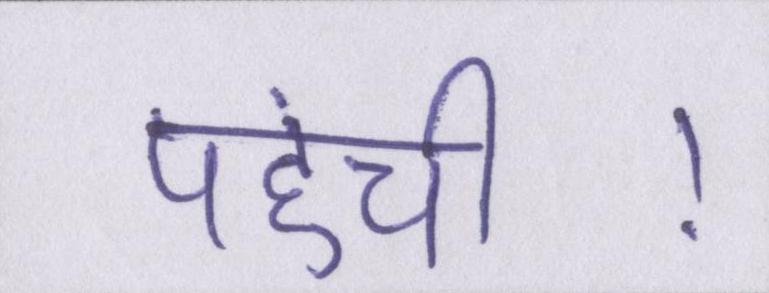 पहुंची !